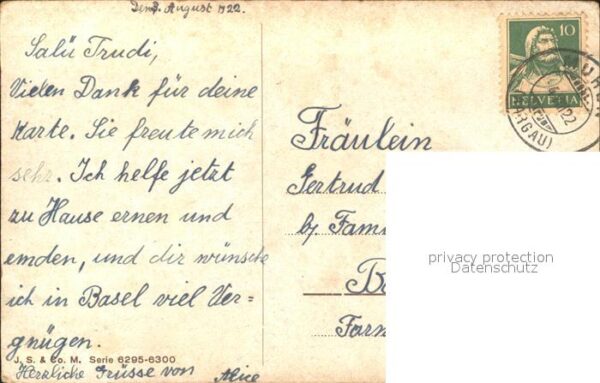 Den 3. August 1922.
Salü Trudi,
Vielen Dank für deine
Karte. Sie freute mich
sehr. Ich helfe jetzt
zu Hause ernen und
emden, und dir wünsche
ich in Basel viel Ver=
gnügen.
J. S. & Co. M. Serie 6295-6300
Herzliche Grüsse von Alice
10
HELVETIA
(ARGAU)
Fräulein
Gertrud
b/ Fami
privacy protection
Datenschutz